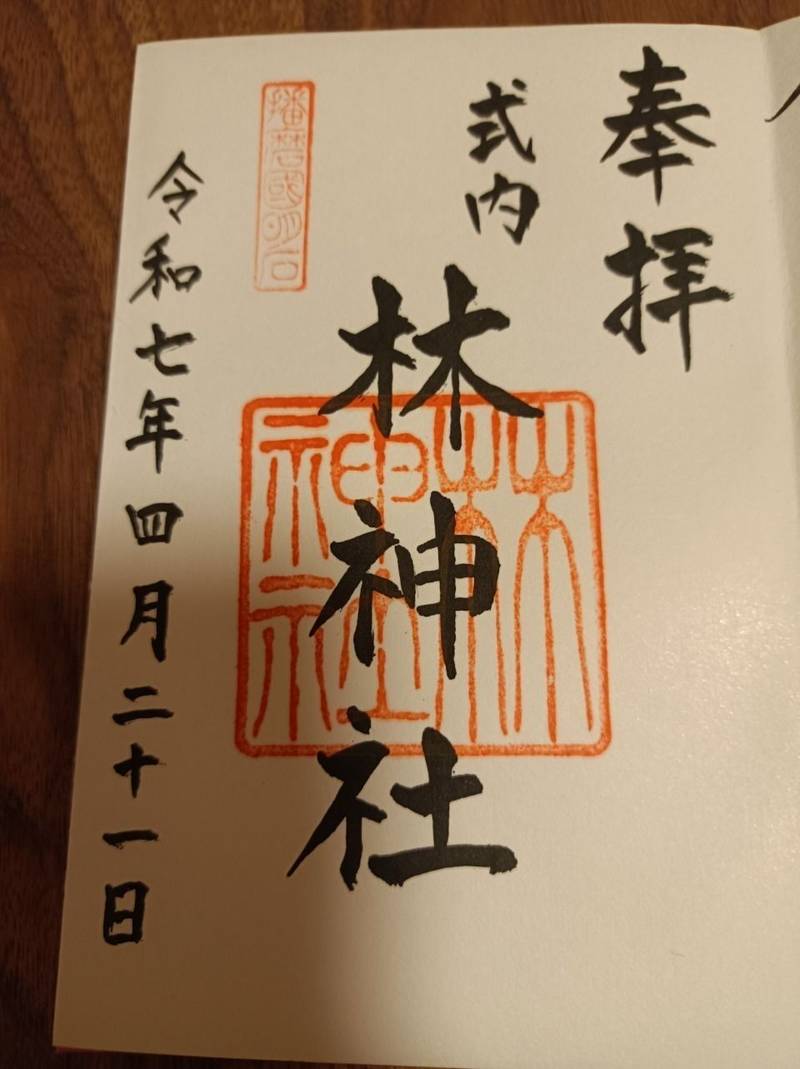 奉拝
式内
林神社
林神社
播磨國明石
令和七年四月二十一日